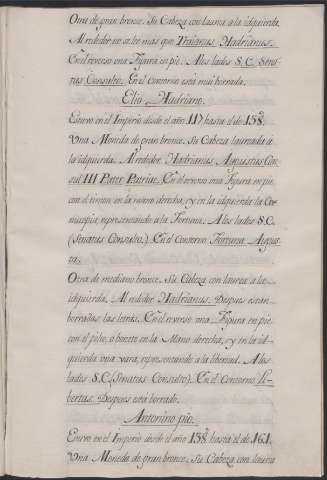 Otra de gran bronce. Su Cabeza con laurea a la izquierda.
Al rededor no se lee mas que Traianus Hadrianus.
En el reverso una Figura en pie. A los lados S. C. Sena-
tus Consulto. En el Contorno está mui borrada.
Elio Hadriano.
Estuvo en el Imperio desde el año 117 hasta el de 138.
Una Moneda de gran bronce. Su Cabeza laureada à
la izquierda. Al rededor Hadrianus Augustus Con-
sul III Pater Patriæ. En el reverso una Figura en pie
con el timon en la mano derecha, y en la izquierda la Cor-
nucopia, representando a la Fortuna. A los lados S. C.
(Senatus Consulto.) En el Contorno Fortuna Augus-
ta.
Otra de mediano bronce. Su Cabeza con laurea a la
izquierda. Al rededor Hadrianus. Despues estan
borradas las letras. En el reverso una Figura en pie
con el pileo, o bonete en la Mano derecha, y en la iz-
quierda una vara, representando a la libertad. A los
lados S. C. (Senatus Consulto). En el Contorno Li-
bertas. Despues está borrado.
Antonino pio.
Estuvo en el Imperio desde el año 138 hasta el de 161.
Una Moneda de gran bronce. Su Cabeza con laurea